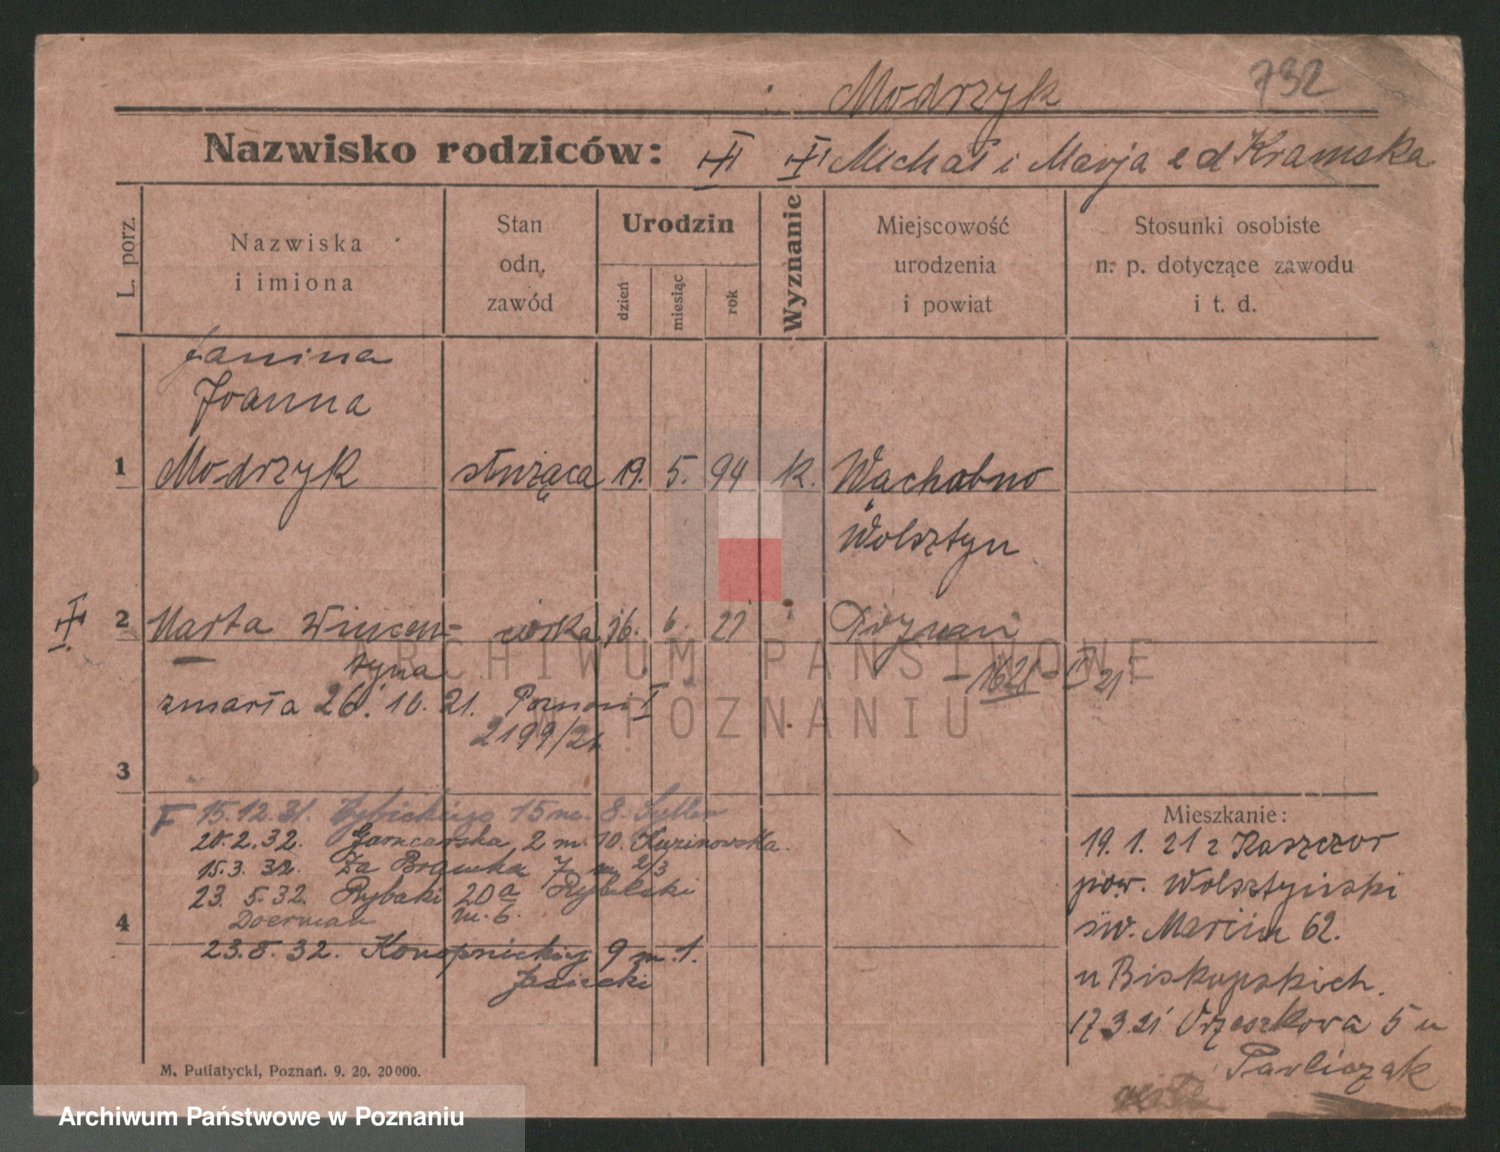 Modrzyk
732
Nazwisko rodziców: Michał i Marja e d Kramska
L. porz.
Nazwiska i imiona
Stan odn. zawód
Urodzin
dzień
miesiąc
rok
Wyznanie
Miejscowość urodzenia i powiat
Stosunki osobiste n. p. dotyczące zawodu i t. d.
Janina
Joanna
1 Modrzyk służąca 19. 5. 94 k. Wąchabno
Wolsztyn
2 Marta Wincen- córka 16. 6. 21 Poznań
tyna
zmarła 26. 10. 21. Poznań I
2199/21.
3
15.12.31. 15 m. 8.
20.2.32. Garncarska 2 m. 10. Kuzinowska.
15.3.32. Za Bramką 7 m. 2/3
23. 5. 32. Rybaki 20a Rybelski
Doerman m. 6.
4
23.8.32. Konopnickiej 9 m. 1.
Jasiecki
Mieszkanie:
19. 1. 21 z Kaszczor
pow. Wolsztyński
św. Marcin 62.
u Biskupskich.
17.3.21 Orzeszkowa 5 u
Pawliczak
verte
M. Putiatycki, Poznań. 9. 20. 20000.
ARCHIWUM PAŃSTWOWE
W POZNANIU
Archiwum Państwowe w Poznaniu